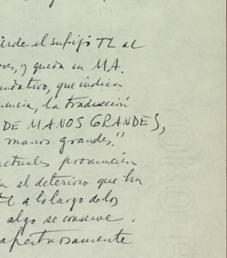 el sufijo TL al
y queda en MA.
que indica
la traducción
DE MANOS GRANDES,
manos grandes."
actuales pronuncian
el deterioro que ha
a lo largo de los
algo se conserve.
afectuosamente